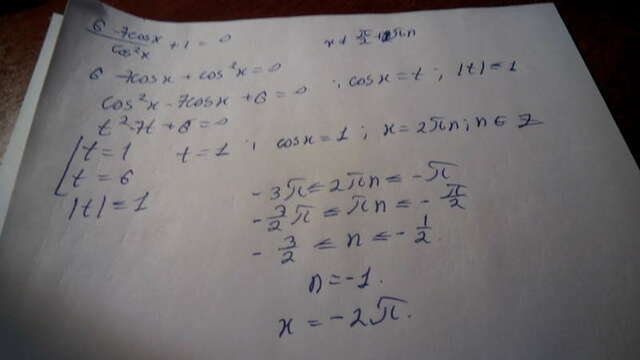 (6 - 7cosx)/cos²x + 1 = 0    x ≠ π/2 + πn
6 - 7cosx + cos²x = 0
cos²x - 7cosx + 6 = 0 ; cosx = t ; |t| ≤ 1
t² - 7t + 6 = 0
[ t = 1    t = 1 ; cosx = 1 ; x = 2πn ; n ∈ Z
t = 6
|t| = 1
-3π ≤ 2πn ≤ -π
-3/2π ≤ πn ≤ -π/2
-3/2 ≤ n ≤ -1/2
n = -1.
x = -2π.